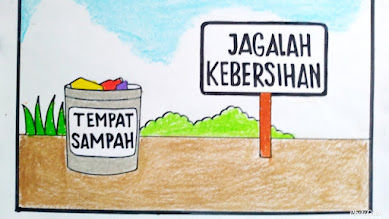 JAGALAH
KEBERSIHAN
TEMPAT
SAMPAH